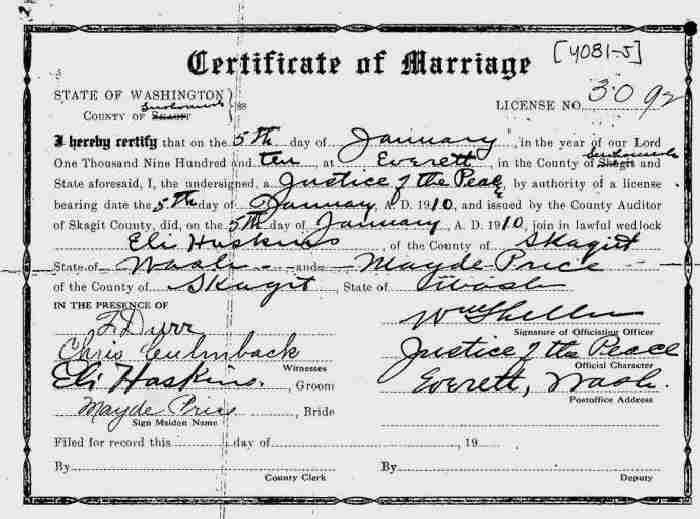 [4081-5]
Certificate of Marriage
STATE OF WASHINGTON } ss
Snohomish
COUNTY OF SKAGIT
LICENSE NO. 3092
I hereby certify that on the 5th day of January, in the year of our Lord
One Thousand Nine Hundred and ten, at Everett, in the County of Skagit Snohomish and
State aforesaid, I, the undersigned, a Justice of the Peace, by authority of a license
bearing date the 5th day of January, A. D. 1910, and issued by the County Auditor
of Skagit County, did, on the 5th day of January, A. D. 1910, join in lawful wedlock
Eli Haskins, of the County of Skagit
State of Wash and Mayde Price
of the County of Skagit, State of Wash
IN THE PRESENCE OF
Durr
Chris Culmback
Witnesses
Eli Haskins, Groom
Mayde Price, Bride
Sign Maiden Name
Wm Sheller
Signature of Officiating Officer
Justice of the Peace
Official Character
Everett, Wash.
Postoffice Address
Filed for record this day of , 19
By
County Clerk
By
Deputy